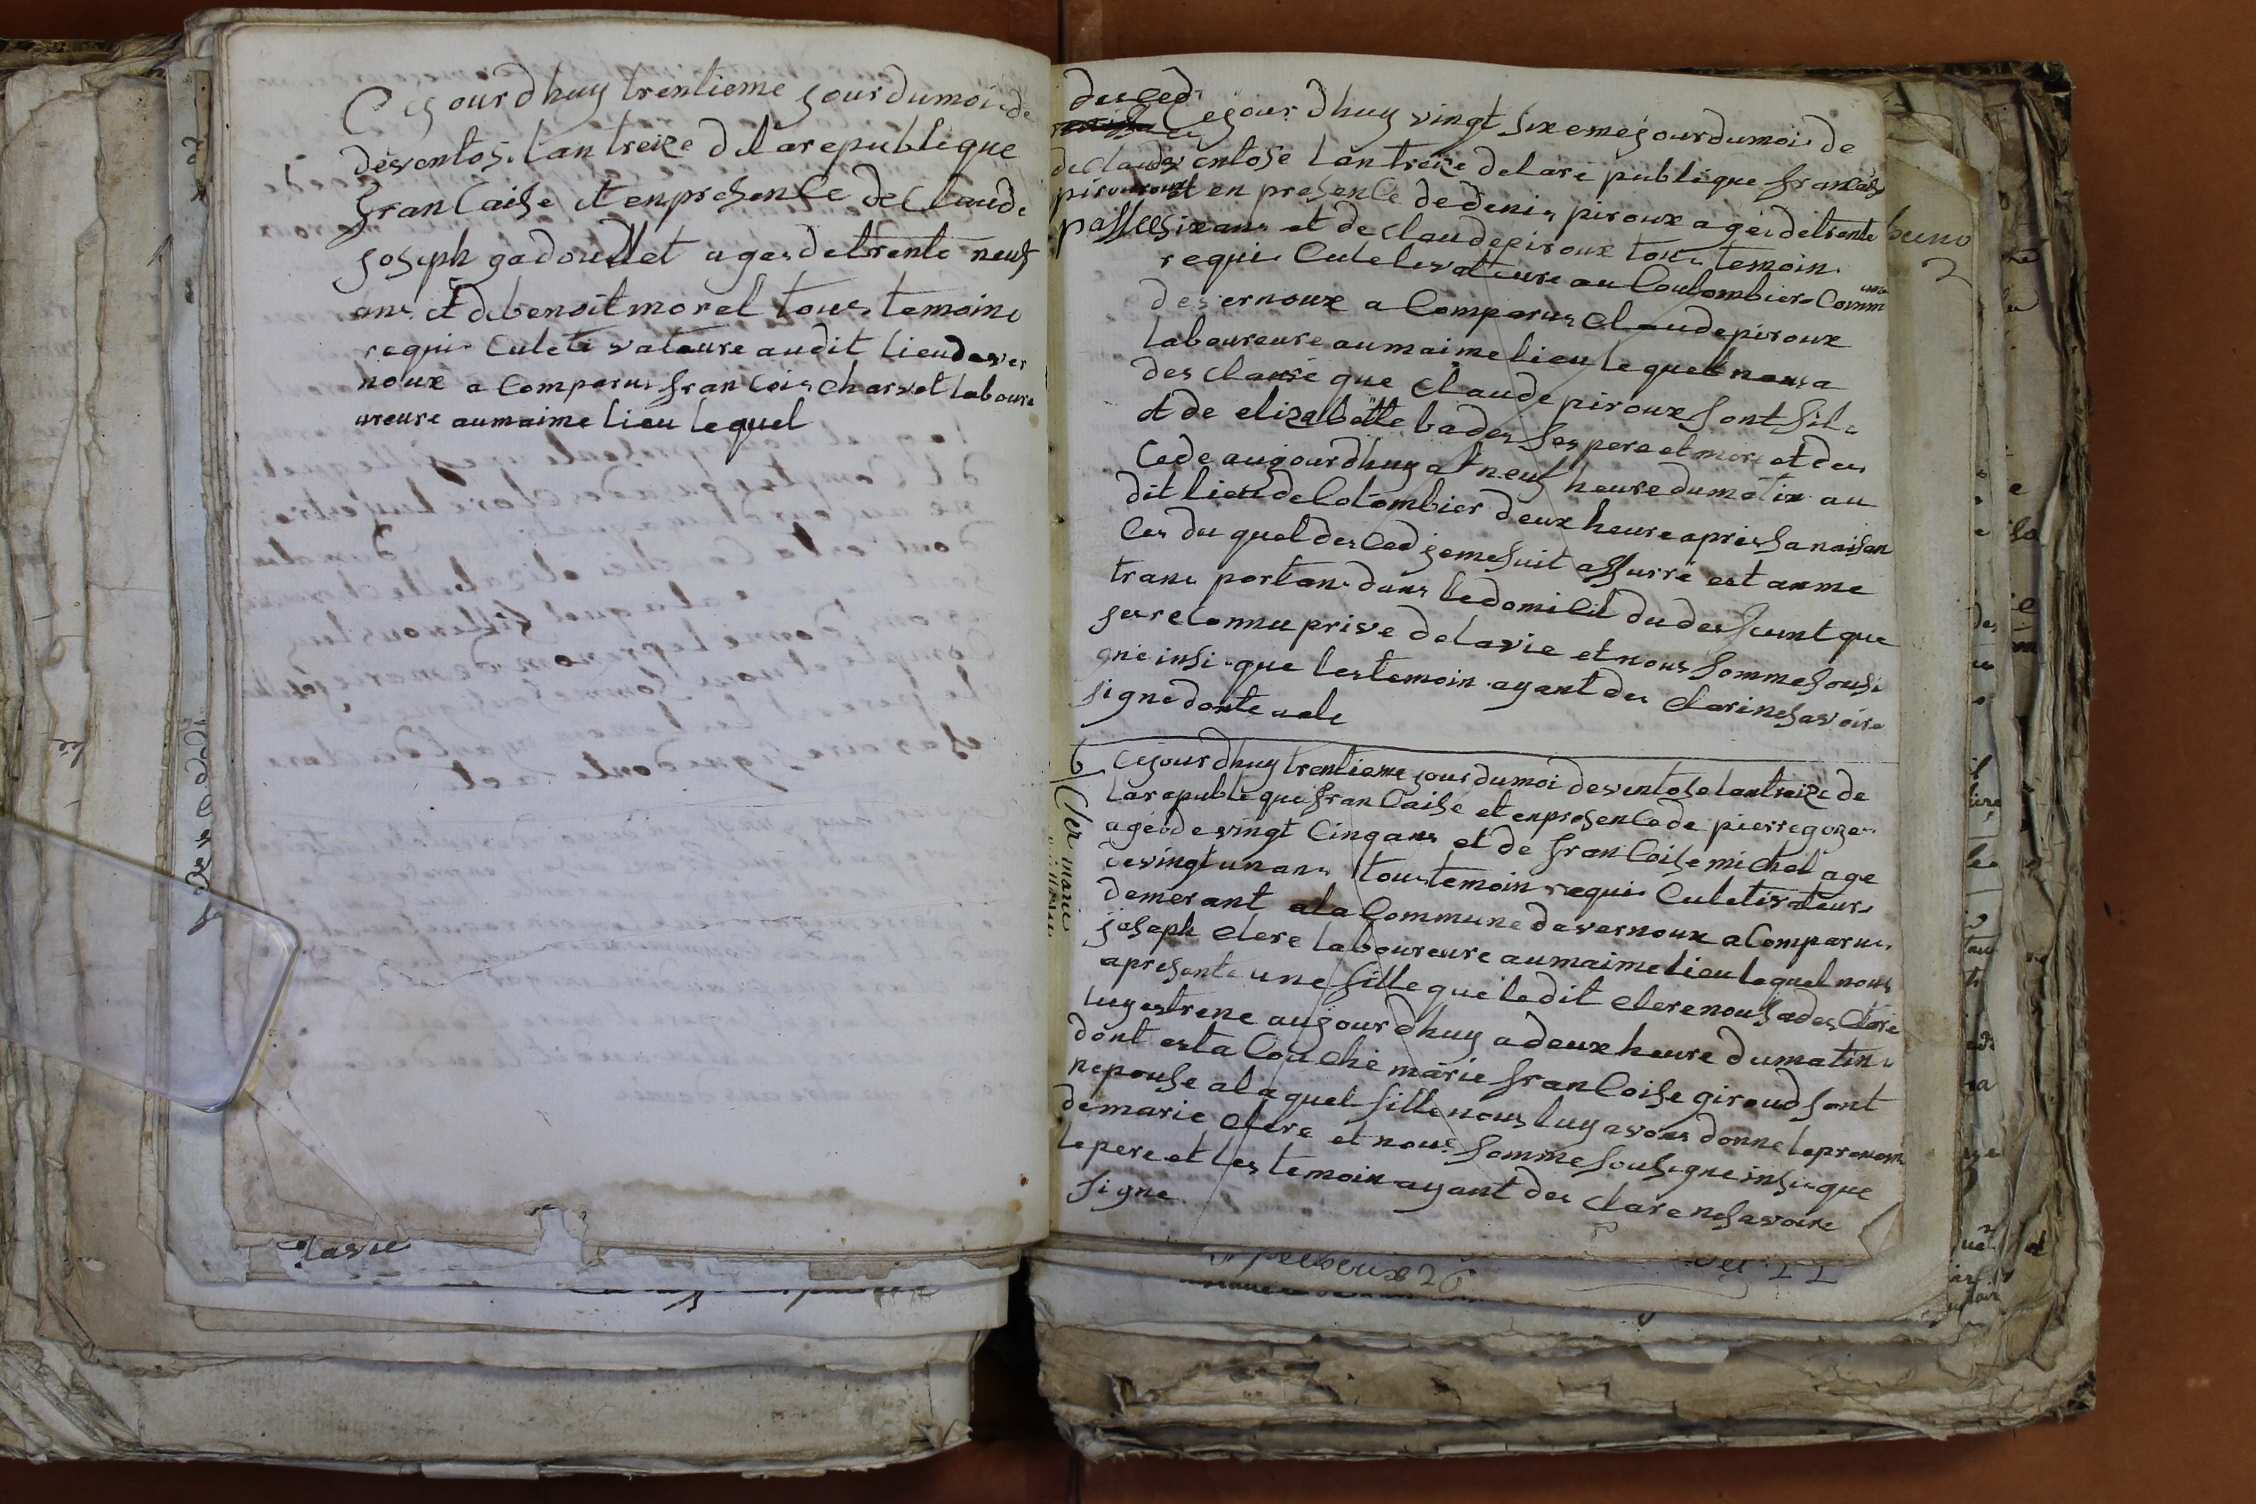 Cejourdhuy trentieme jour du moi de
desventos. lan treize de la republique
francaise et enpresence de Claude
joseph gadouillet ages de trente neuf
ans et de benoit morel tous temoins
requis Culetivateure audit lieu dever
noux a Comparus francois charvet laboure
ureure aumaime lieu lequel
lavie
deced
de claude
piroux
passees
Cejour dhuy vingt sixeme jour dumois de
ventose lan treize delare publeque francaise
et en presence dedenis piroux agéi de trente
six ans et de claude piroux tous temoin
requis Culetivateure au Coulombier Comm
de vernoux a Comparus Claude piroux
laboureure aumaime lieu le quel nous a
des claré que claude piroux sont fils
et de elizabette bades ses pere et mere et des
cede aujourdhuy at neuf heure dumatin au
dit lieu de Colombier deux heure apres sa naisan
ces du quel desced jemesuit assurré est anme
trans portans dans le domicil du desfunt que
jes reconnu prive delavie et nous somme sousi
gné insi que les temoin ayant des clarinesavoire
signe donte acte
Cler marie
Cejourdhuy trentieme jour dumoi desventose lantreize de
larepubleque francaise et enpresence de pierre goze
agéi de vingt Cinq ans et de francoise michel age
de vingt un ans tous temoin requis Culetivateurs
demerant ala Commune devernoux a Comparus
joseph clere laboureure aumaime lieu lequel nous
apresente une fille que ledit clere nous ades clare
luy estrene aujourdhuy adeux heure dumatin
dont esta Couché marie francoise giroud sont
nepouse alaquel fille nous luy avous donne leprenom
demarie clere et nous somme sousigne insi que
lepere et les temoin ayant des clare nesavoire
signe